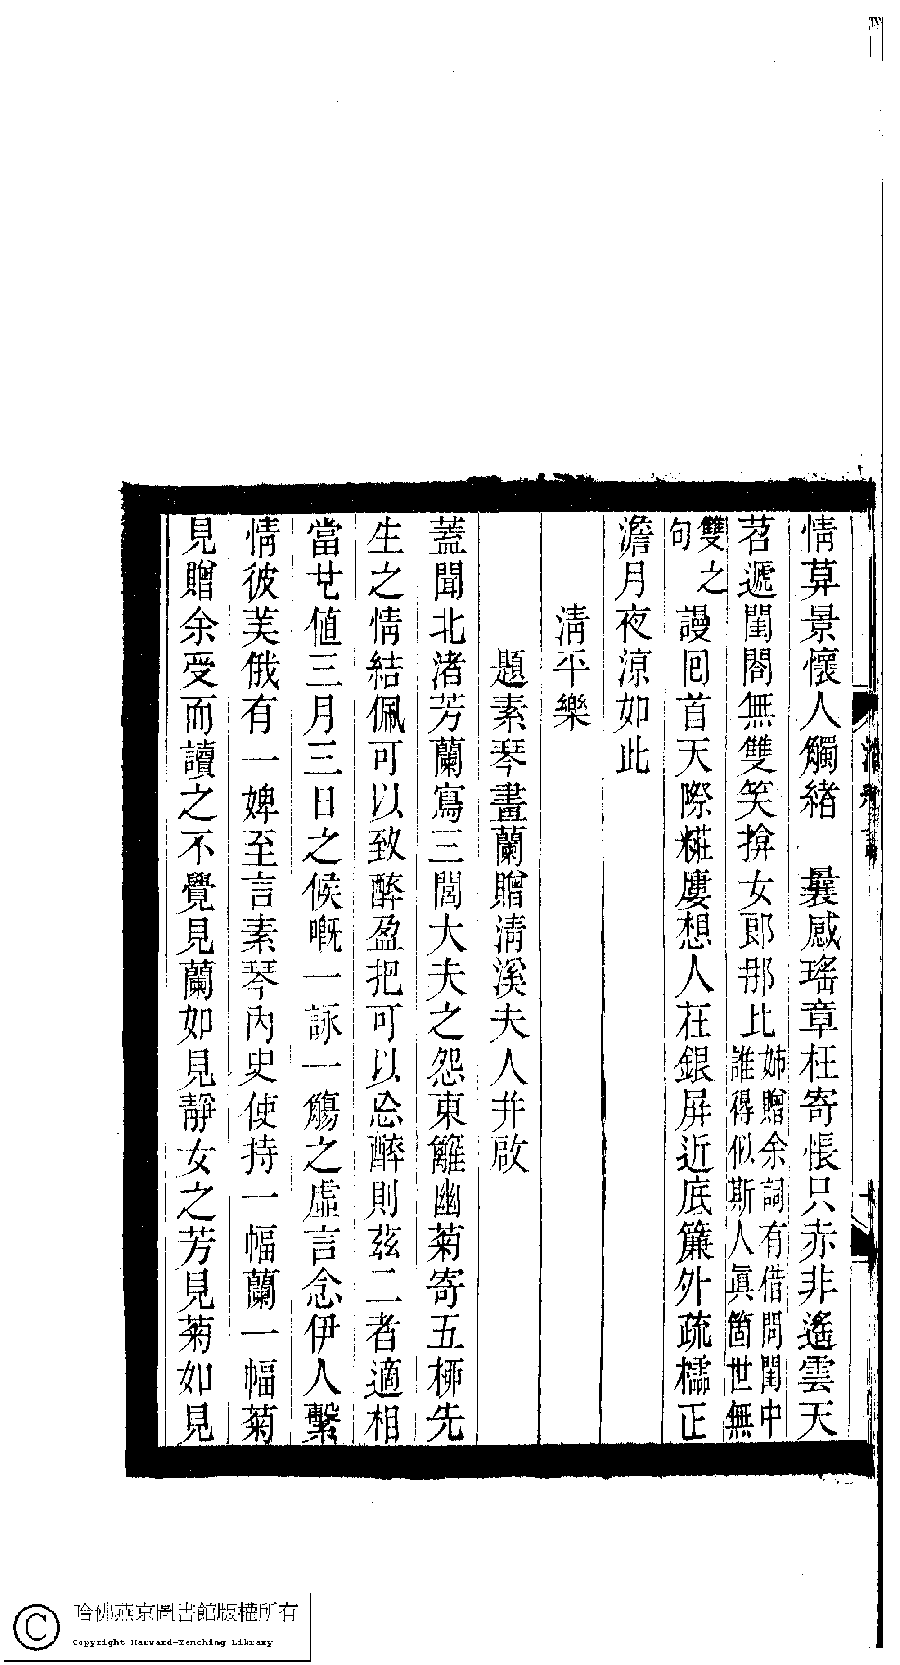 情草景懷人觸緒　曩感瑤章枉寄悵只赤非遙雲天
苕遞閨閤無雙笑揜女郎那比姊贈余詞有借問閨中誰得似斯人眞箇世無
雙之句謾囘首天際糚慶想人在銀屏近底簾外疏櫺正
澹月夜涼如此
淸平樂
題素琴畫蘭贈淸溪夫人幷啟
蓋聞北渚芳蘭寫三閭大夫之怨東籬幽菊寄五柳先
生之情結佩可以致醉盈把可以忘醉則茲二者適相
當也値三月三日之候嘅一詠一觴之虛言念伊人繫
情彼美俄有一婢至言素琴內史使持一幅蘭一幅菊
見贈余受而讀之不覺見蘭如見靜女之芳見菊如見
哈佛燕京圖書館版權所有
Copyright Harvard-Yenching Library